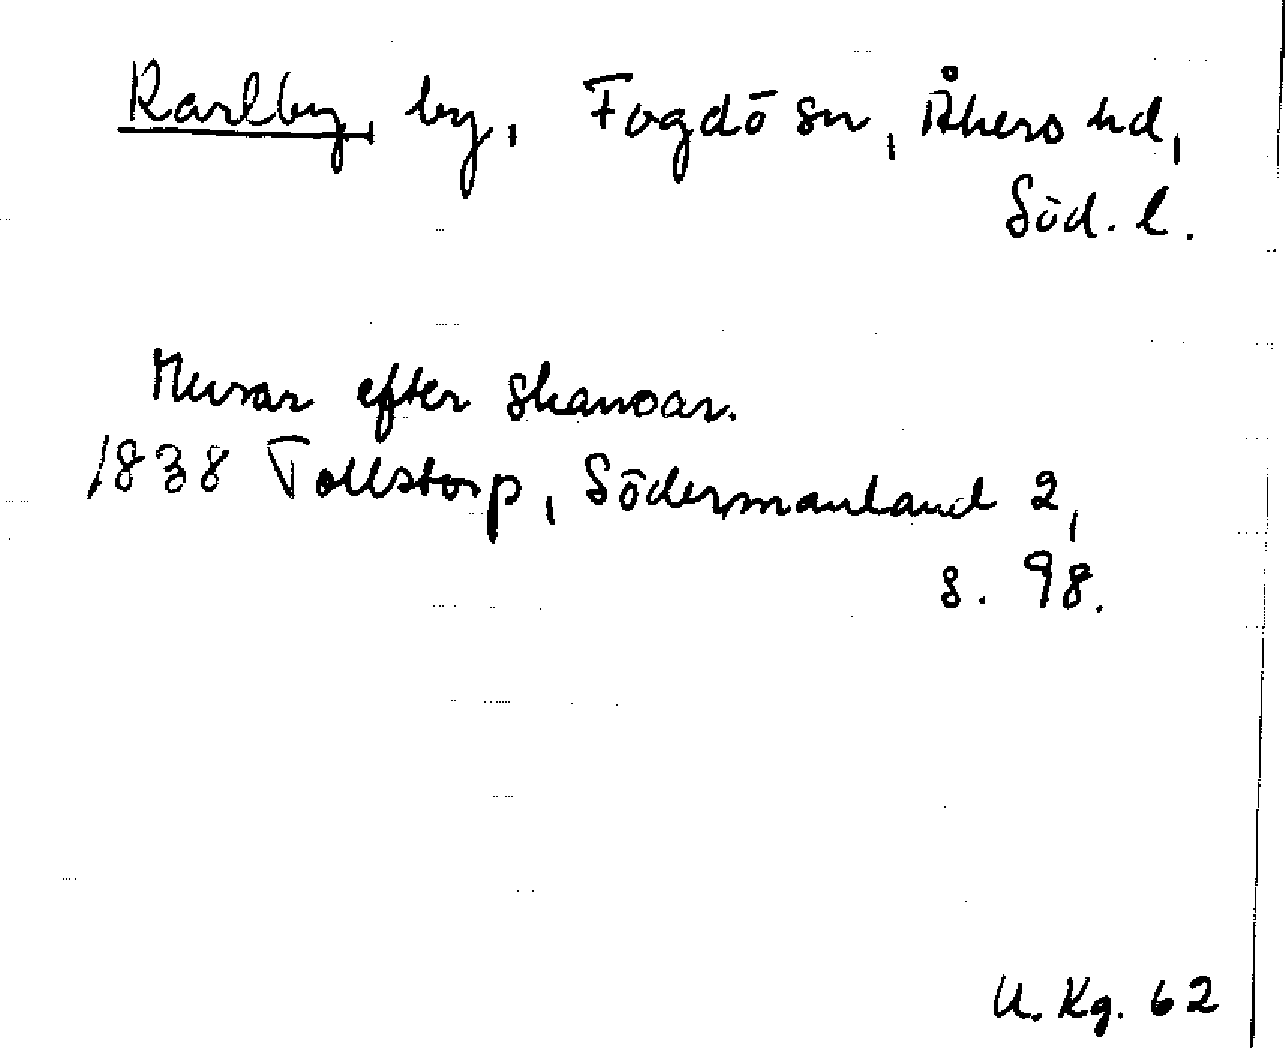 Karlby, by, Fogdö sn, Åkers hd,
Söd. l.
Murar efter skansar.
1838 Tollstorp, Södermanland 2,
s. 98.
U. Kg. 62